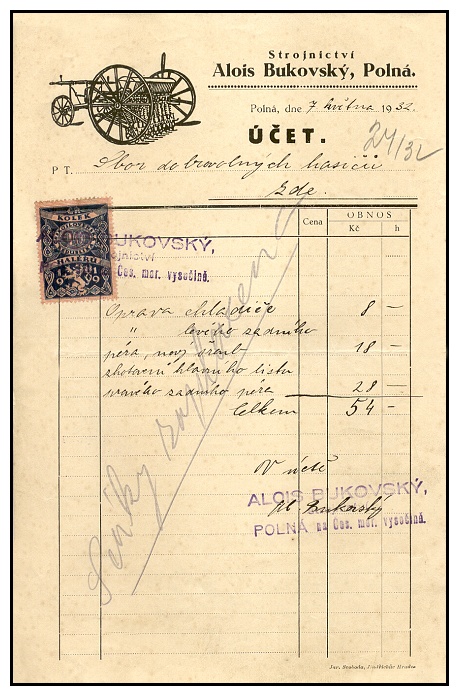 Strojnictví
Alois Bukovský, Polná.
Polná, dne 7 května 1932.
ÚČET.
24/32
P T. Sbor dobrovolných hasičů
zde.
Cena OBNOS
Kč h
KOLEK
BUKOVSKÝ,
Strojnictví
na Čes. mor. vysočině.
Oprava chladiče 8 —
" levého zadního
péra, nový šroub 18 —
zhotovení hlavního listu
pravého zadního péra 28 —
Celkem 54 —
V úctě
ALOIS BUKOVSKÝ,
Al. Bukovský
POLNÁ na Čes. mor. vysočině.
Díky
Jar. Svoboda, Jindřichův Hradec